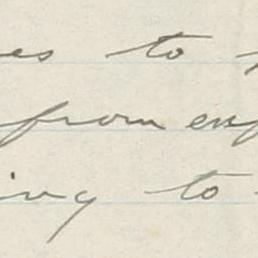 es to
from enj
ing to